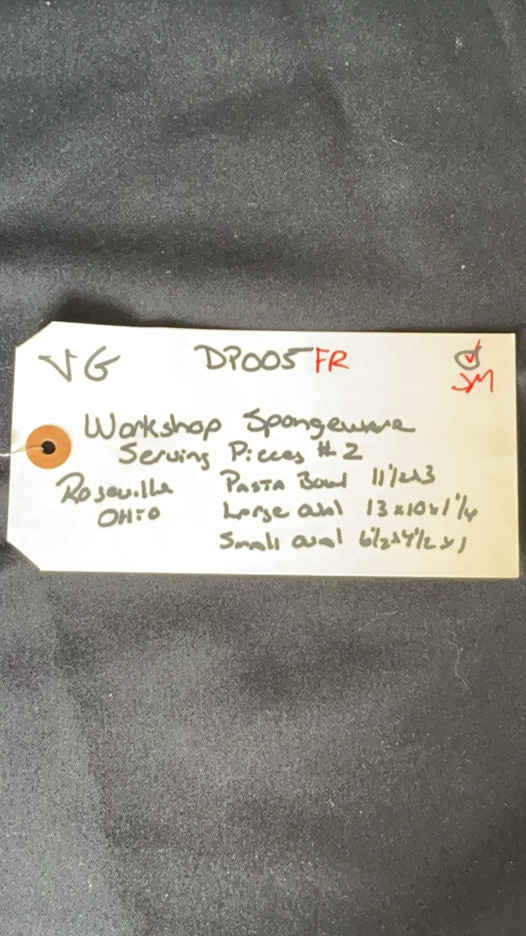 VG DP005 FR
JM
Workshop Spongeware
Serving Pieces #2
Roseville Pasta Bowl 11 1/2 x 3
OHIO Large oval 13 x 10 x 1 1/4
Small oval 6 1/2 x 4 1/2 x 1